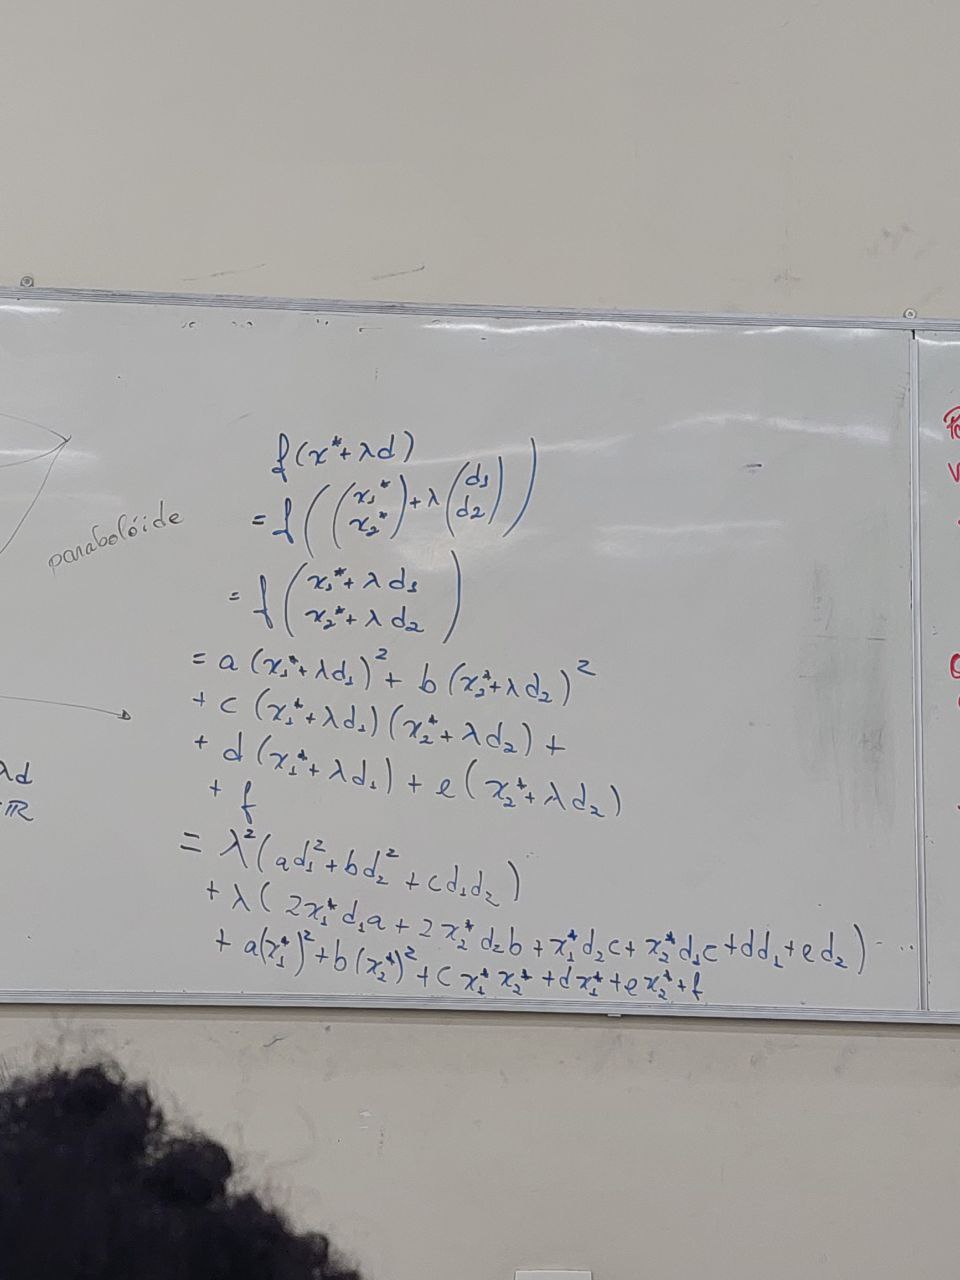 f(x*+λd)
= f((x₁* x₂*)+λ(d₁ d₂))
paraboloide
= f(x₁*+λd₁
x₂*+λd₂)
= a(x₁*+λd₁)²+ b(x₂*+λd₂)²
+ c(x₁*+λd₁)(x₂*+λd₂)+
+ d(x₁*+λd₁)+e(x₂*+λd₂)
λd
+ f
ℝ
= λ²(ad₁²+bd₂²+cd₁d₂)
+λ(2x₁*d₁a+2x₂*d₂b+x₁*d₂c+x₂*d₁c+dd₁+ed₂)
+ a(x₁*)²+b(x₂*)²+cx₁*x₂*+dx₁*+ex₂*+f